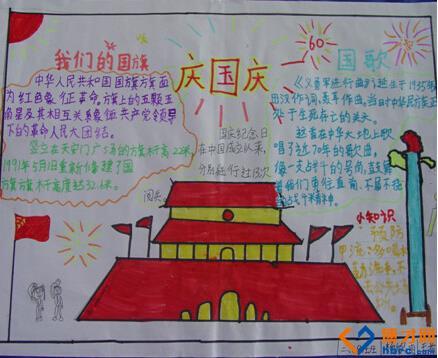 我们的国旗
中华人民共和国国旗旗面
为红色象征革命，旗上的五颗五
角星及其相互关系象征共产党领导
下的革命人民大团结。
竖立在天安门广场的旗杆高22米，
1991年5月1日重新修理了国
旗旗杆高度达32.6米。
庆国庆
60
国庆纪念日
在中国成立以来，
分别进行过13次
阅兵。
国歌
《义勇军进行曲》诞生于1935年
田汉作词，聂耳作曲，当时中华民族正
处于生死存亡的关头。
这首在中华大地上歌
唱了近70年的歌曲，
像一支战斗的号角，鼓舞
着他们勇往直前、不屈不挠
的战斗精神。
小知识
预防
甲流：多喝